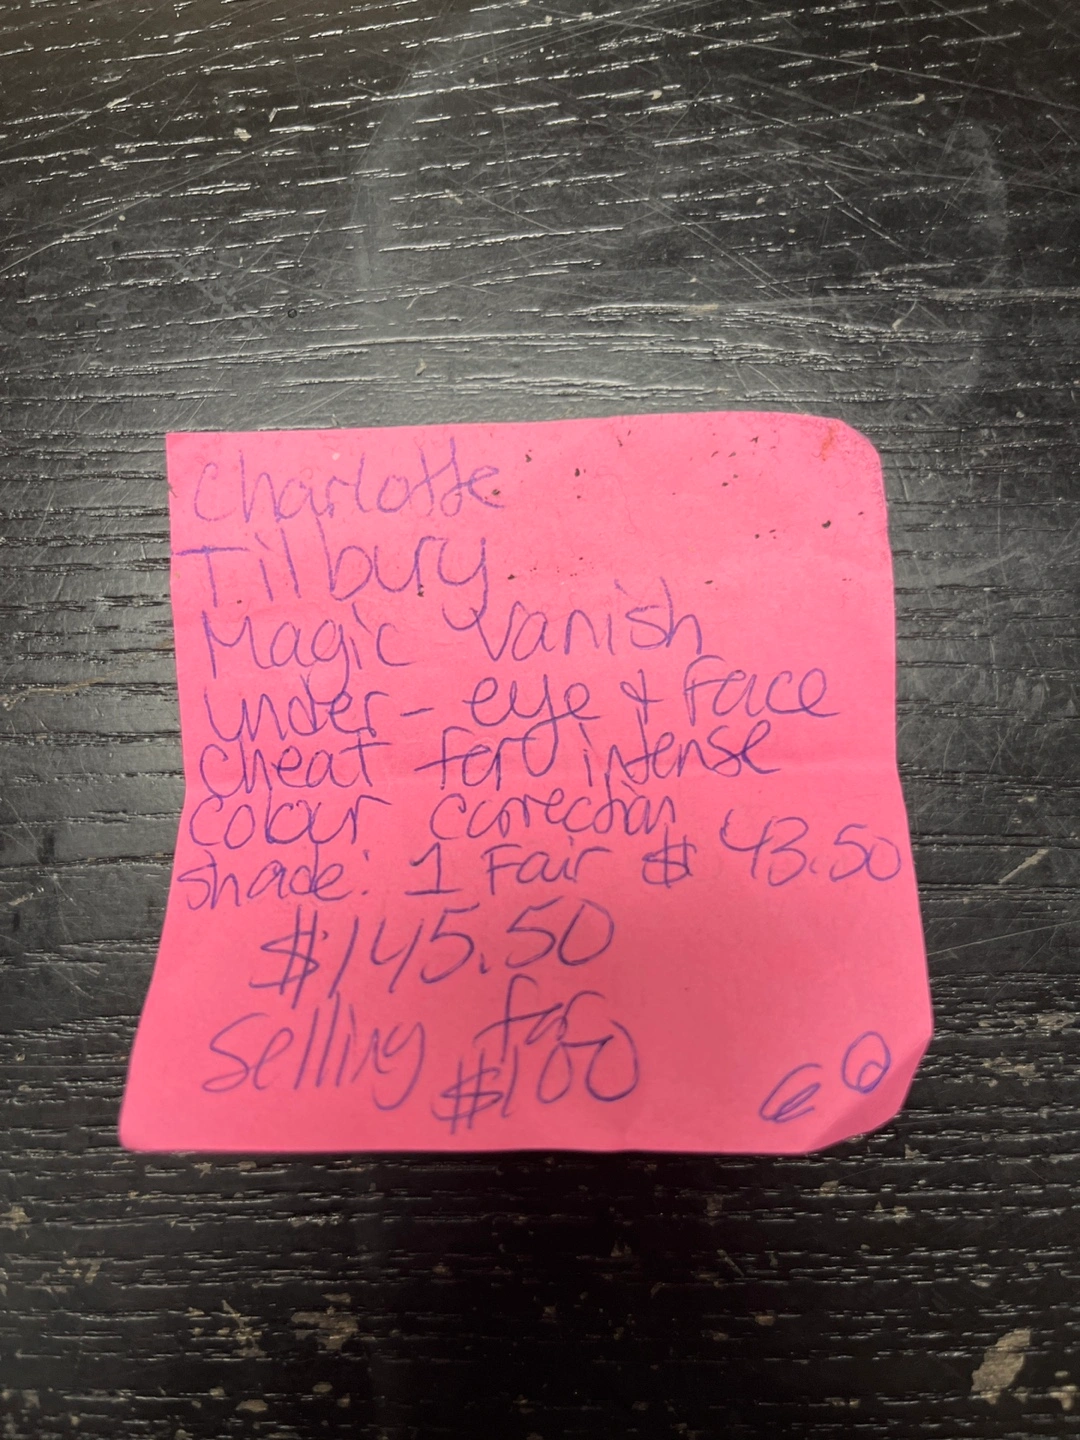 Charlotte
Tilbury
Magic Vanish
under-eye & Face
cheat for intense
colour correction
shade: 1 Fair $ 43.50
$145.50
Selling for
$100